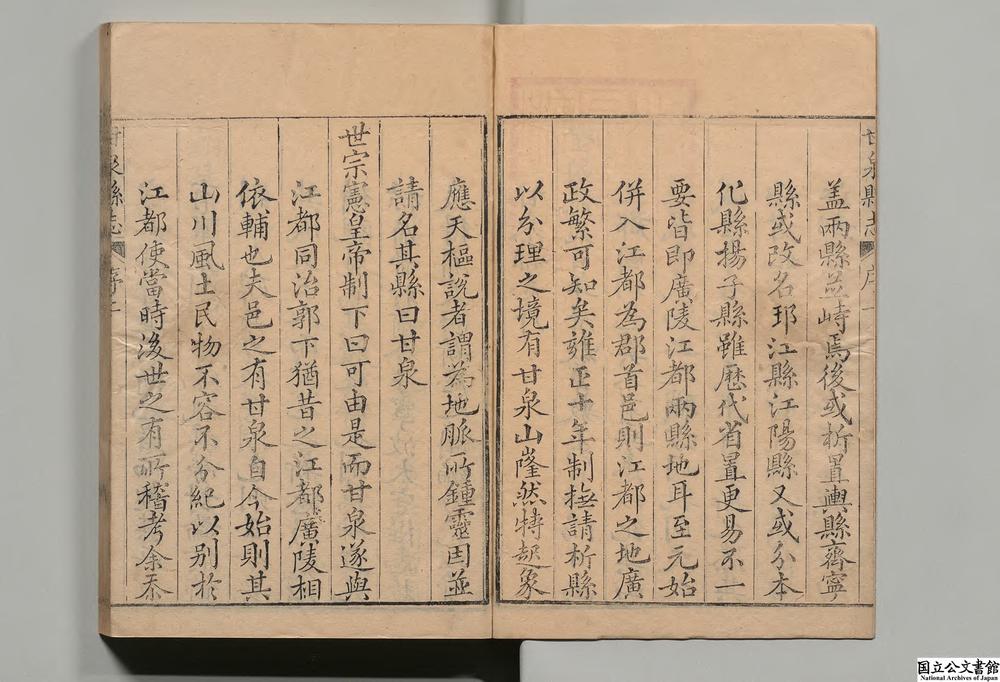 甘泉縣志 序 一
蓋兩縣並峙焉後或析置輿縣齊寧
縣或改名邗江縣江陽縣又或分本
化縣揚子縣雖歷代省置更易不一
要皆即廣陵江都兩縣地耳至元始
併入江都為郡首邑則江都之地廣
政繁可知矣雍正十年制撫請析縣
以分理之境有甘泉山窿然特起象
應天樞說者謂為地脈所鍾靈因並
請名其縣曰甘泉
世宗憲皇帝制下曰可由是而甘泉遂與
江都同治郭下猶昔之江都廣陵相
依輔也夫邑之有甘泉自今始則其
山川風土民物不容不分紀以别於
江都使當時後世之有所稽考余忝
甘泉縣志 序 二
国立公文書館
National Archives of Japan